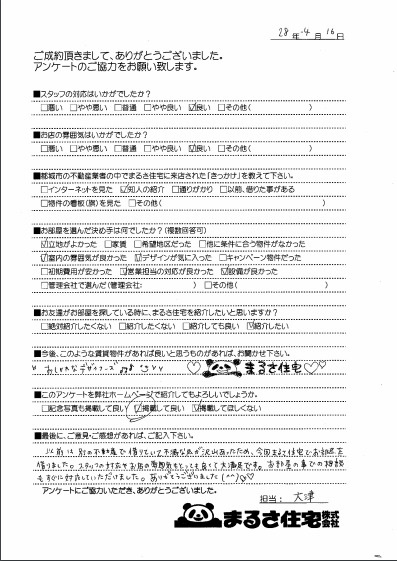 28年 4月 16日
ご成約頂きまして、ありがとうございました。
アンケートのご協力をお願い致します。
■スタッフの対応はいかがでしたか？
□悪い □やや悪い □普通 □やや良い ☑良い □その他( )
■お店の雰囲気はいかがでしたか？
□悪い □やや悪い □普通 □やや良い ☑良い □その他( )
■都城市の不動産業者の中でまるさ住宅に来店された「きっかけ」を教えて下さい。
□インターネットを見た ☑知人の紹介 □通りがかり □以前、借りた事がある
□物件の看板(旗)を見た □その他( )
■お部屋を選んだ決め手は何でしたか？(複数回答可)
☑立地がよかった □家賃 □希望地区だった □他に条件に合う物件がなかった
☑室内の雰囲気が良かった ☑デザインが気に入った □キャンペーン物件だった
□初期費用が安かった ☑営業担当の対応が良かった ☑設備が良かった
□管理会社で選んだ(管理会社: ) □その他( )
■お友達がお部屋を探している時に、まるさ住宅を紹介したいと思いますか？
□絶対紹介したくない □紹介したくない □紹介しても良い ☑紹介したい
■今後、このような賃貸物件があれば良いと思うものがあれば、お聞かせ下さい。
おしゃれなデザイナーズ ♡ まるさ住宅♡♡
■このアンケートを弊社ホームページで紹介してもよろしいでしょうか。
□記念写真も掲載して良い ☑掲載して良い ☑掲載してほしくない
■最後に、ご意見・ご感想があれば、ご記入下さい。
以前は別の不動産で借りていて不満な点が沢山あったため、今回まるさ住宅でお部屋を
借りました。スタッフの対応やお店の雰囲気もとっても良くて大満足です。お部屋の事での相談
もすぐに対応していただけました。ありがとうございました(^^)♡♡
アンケートにご協力いただき、ありがとうございました。
担当: 大津
まるさ住宅株式会社